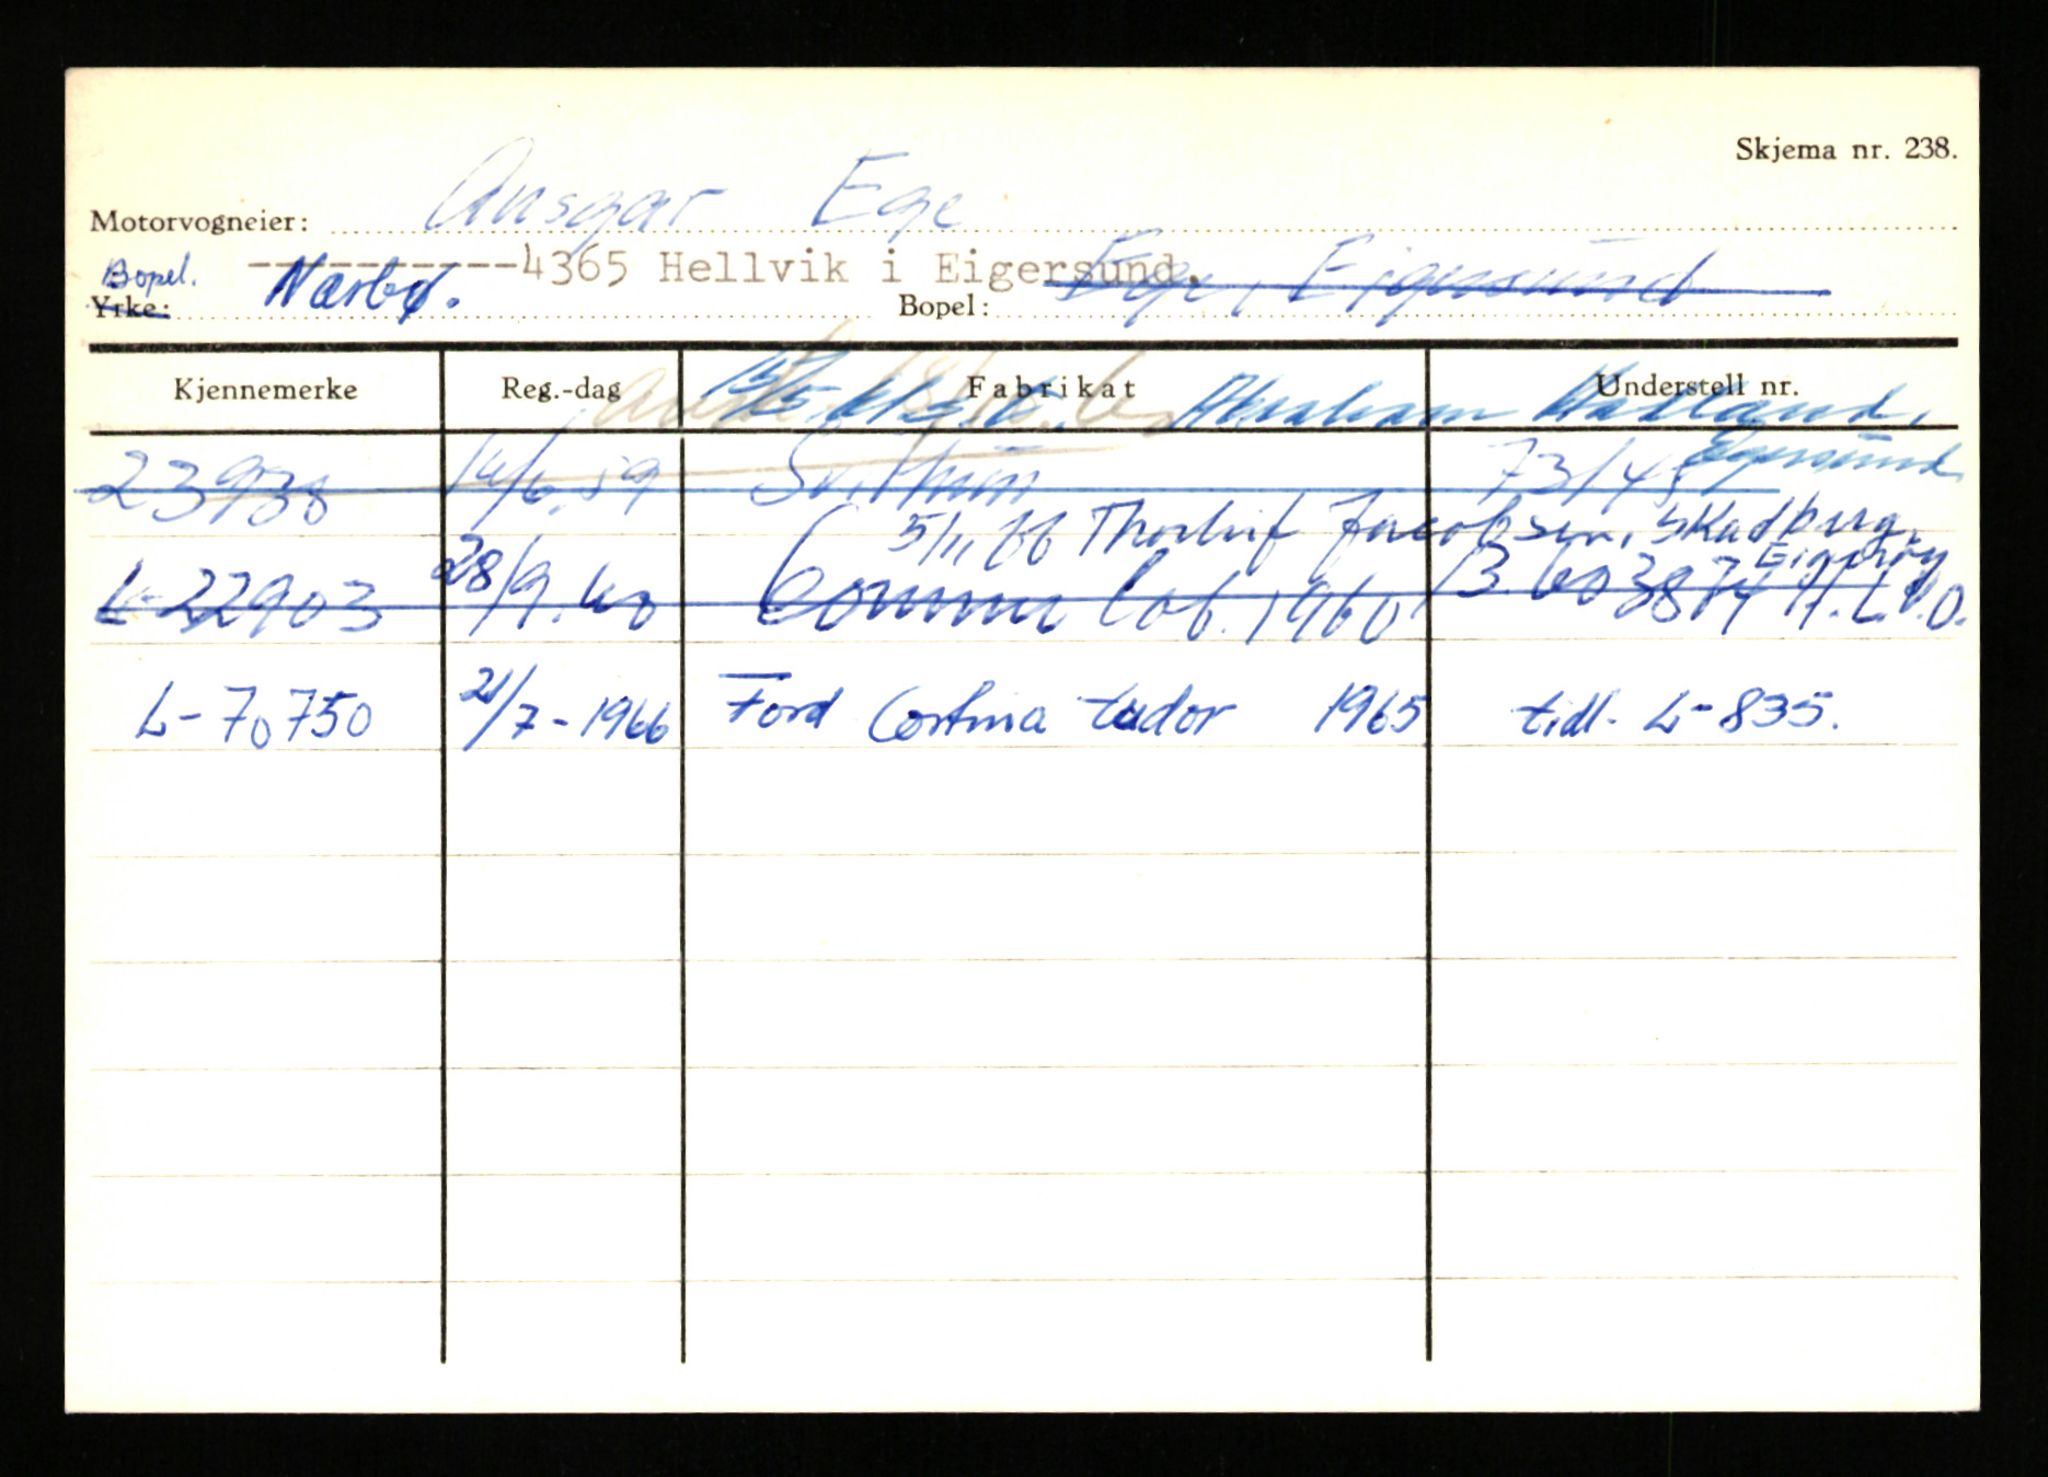 Skjema nr. 238.
Motorvogneier: Ansgar Ege
Bopel. ----------4365 Hellvik i Eigersund.
Yrke: Nærbø. Bopel: Ege, Eigersund
Kjennemerke Reg.-dag Fabrikat Understell nr.
Abraham
Egersund
23938 14/6.59 73/45
5/11 66 Thorleif Jacobsen, Skadberg,
Eigerøy
L-22903 28/9.60 Commer Cob. 1960 B. 603874 H.L.V.O.
L-70750 21/7-1966 Ford Cortina tudor 1965 tidl. L-835.